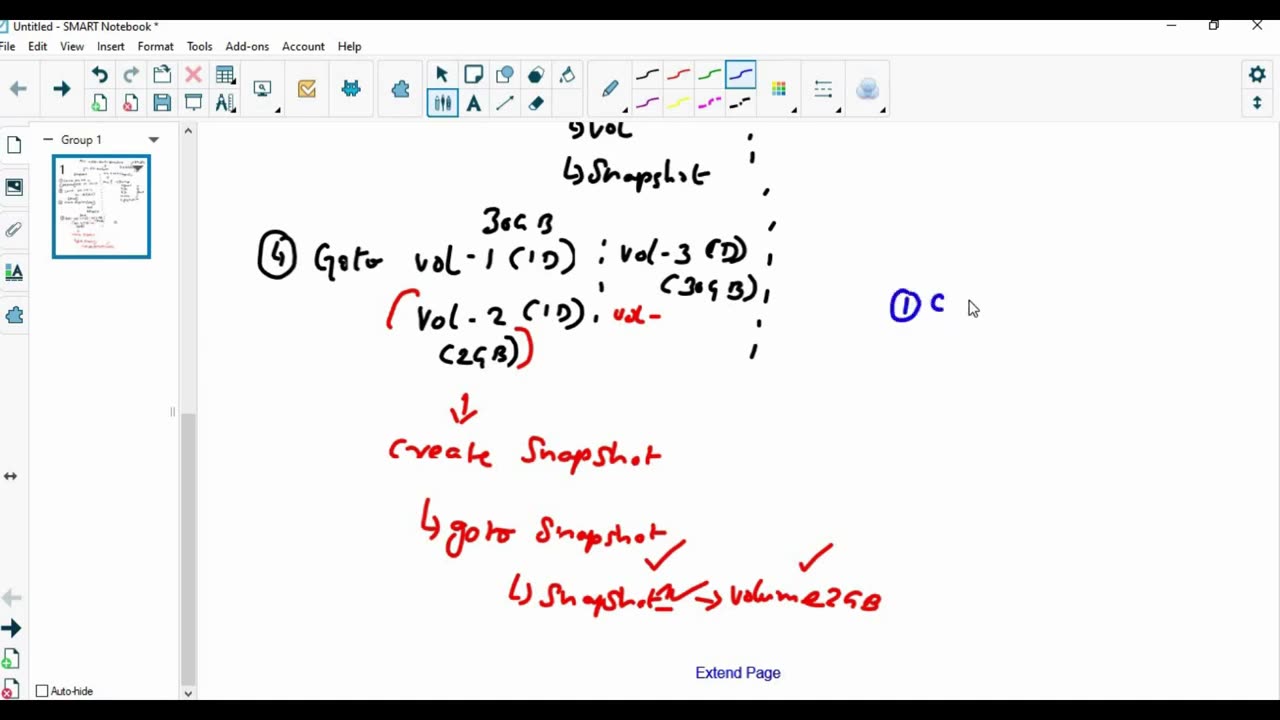 Untitled - SMART Notebook *
File Edit View Insert Format Tools Add-ons Account Help
Group 1
1
↳ Vol
↳ Snapshot
30GB
④ Goto Vol-1 (ID) Vol-3 (ID)
(30GB)
Vol-2 (ID) Vol-
(2GB)
① C
↓
Create Snapshot
↳ goto Snapshot
↳ Snapshot → Volume 2GB
Extend Page
Auto-hide